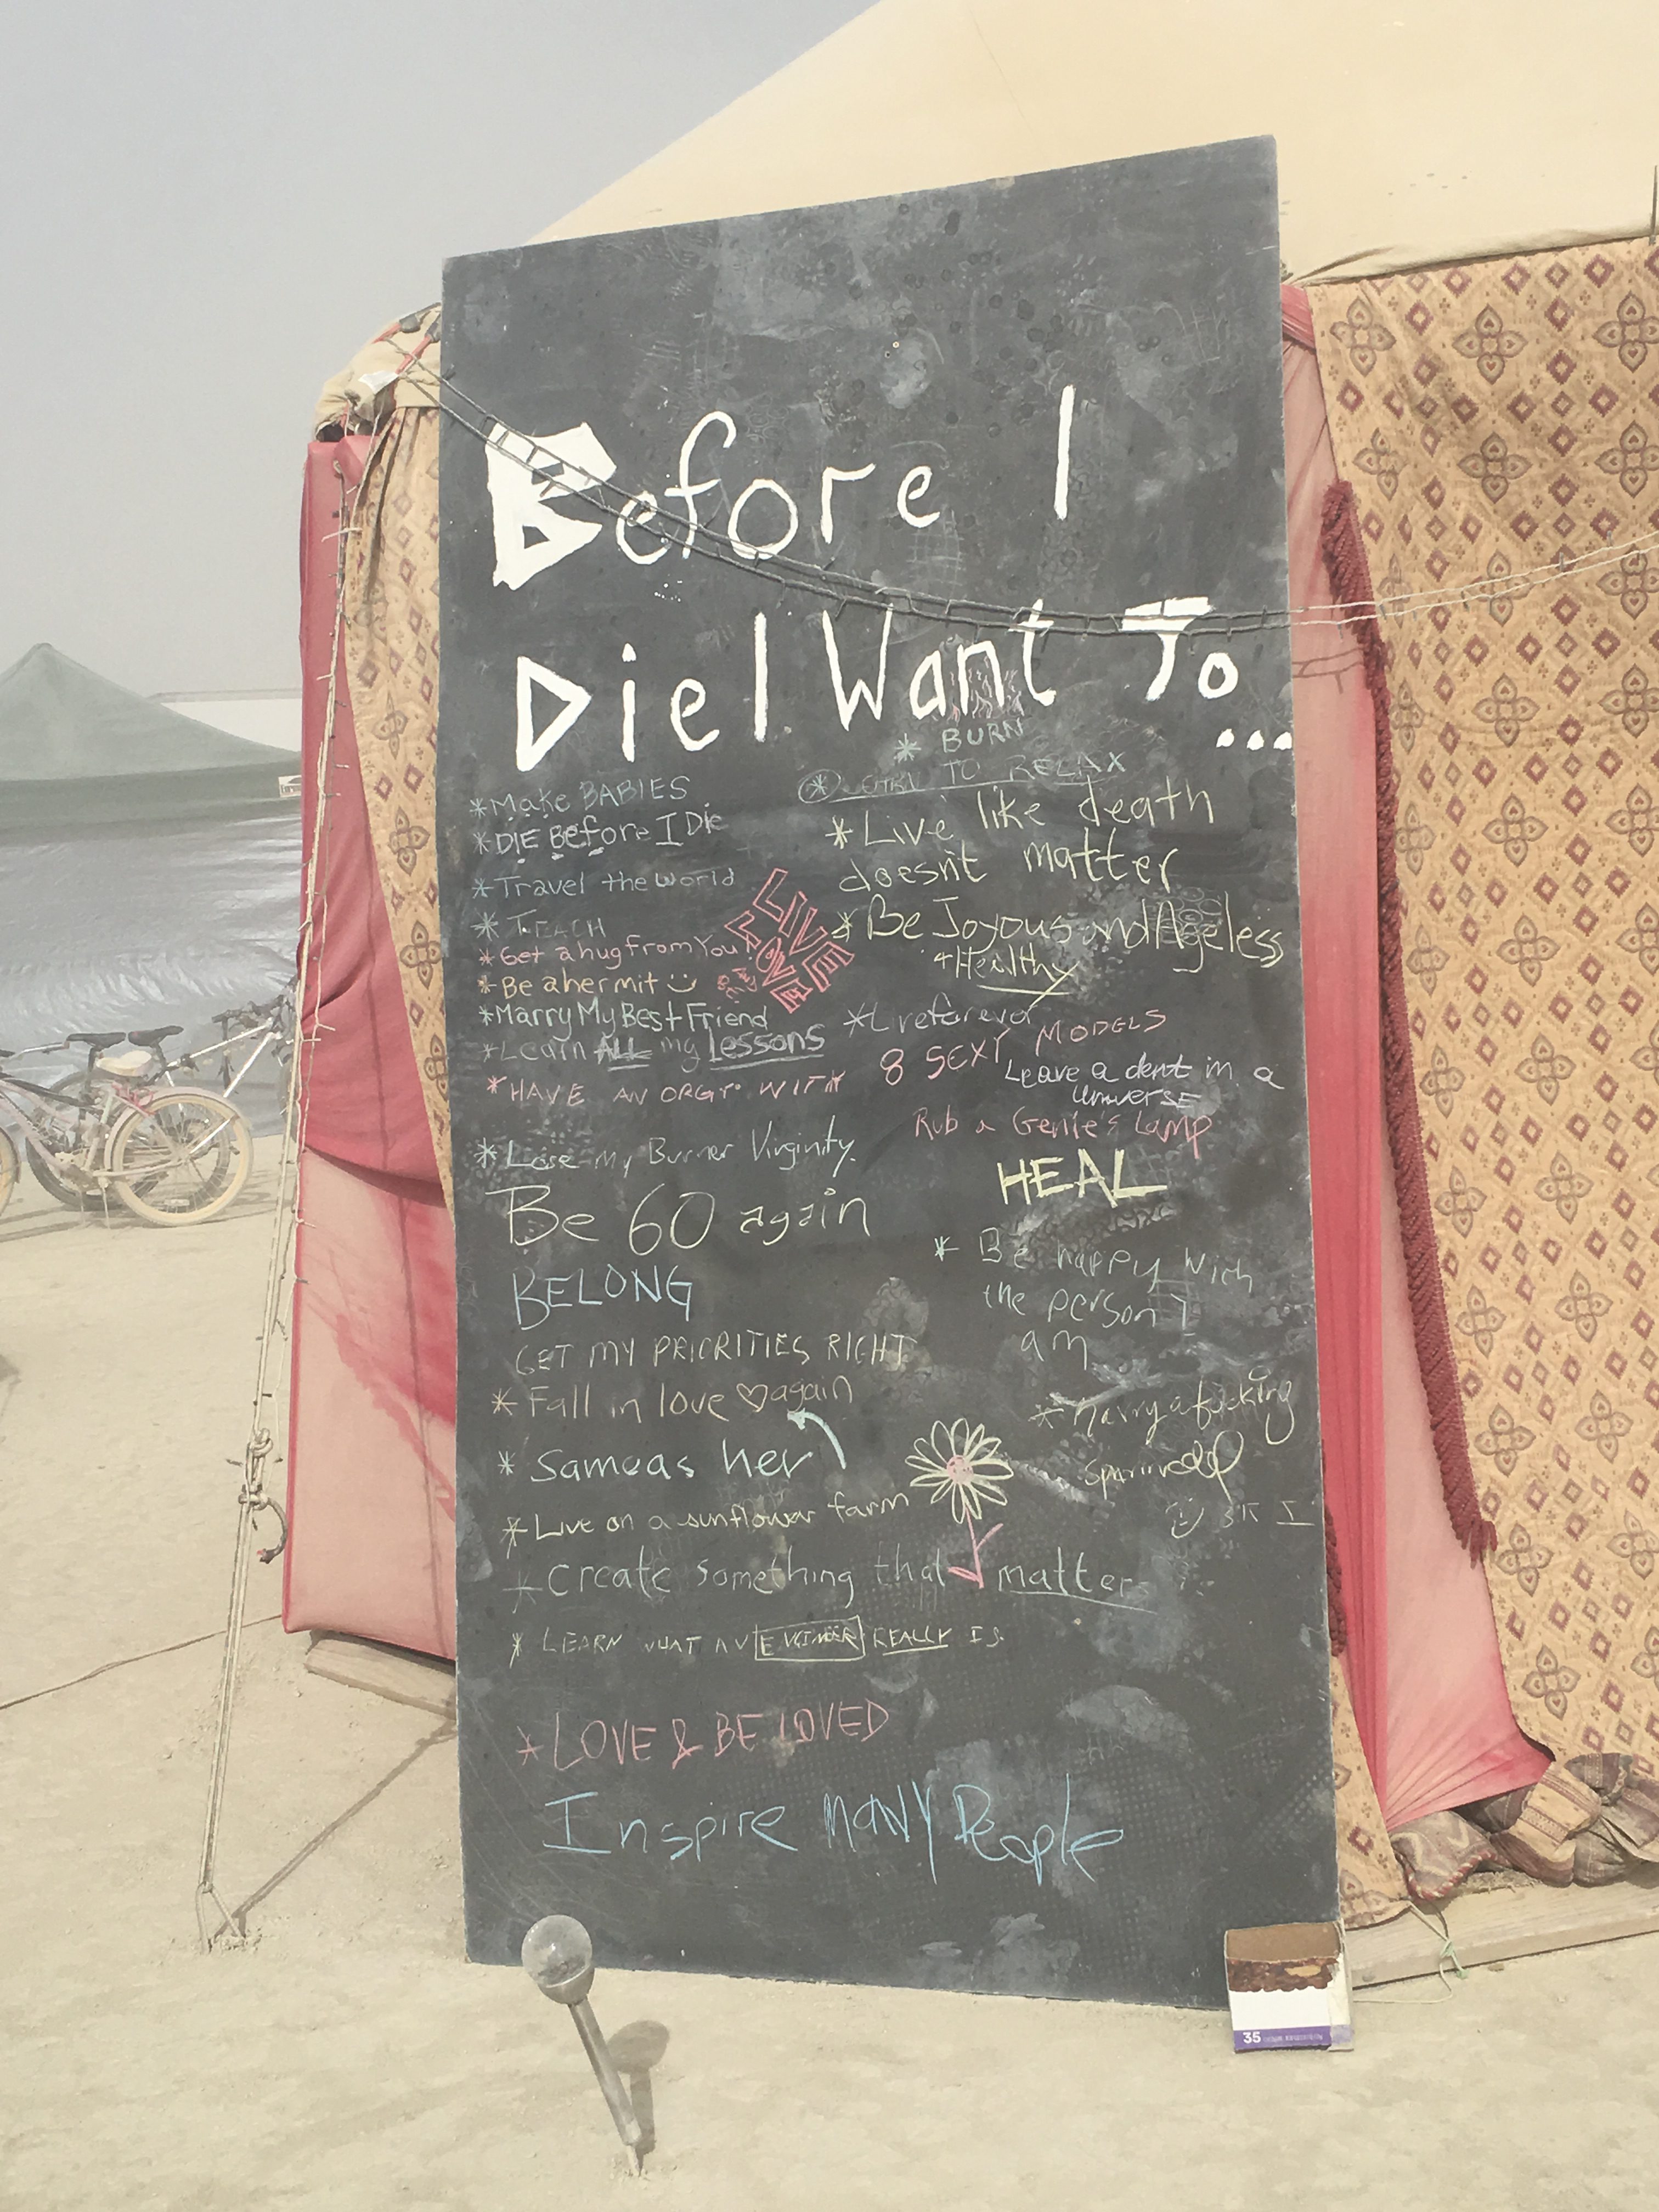 Before I
Die I Want To...
* BURN
* LEARN TO RELAX
* Make BABIES
* DIE Before I Die
* Travel the world
* TEACH
* Get a hug from You
* Be a hermit
* Marry My Best Friend
* Learn ALL my lessons
* HAVE AN ORGY WITH
8 SEXY MODELS
LIVE
LOVE
* Live like death
doesn't matter
* Be Joyous and Ageless
+ Healthy
* Live forever
Leave a dent in a
universe
Rub a Genie's lamp
* Lose My Burner Virginity.
Be 60 again
HEAL
BELONG
* Be happy with
the person I
am
GET MY PRIORITIES RIGHT
* Fall in love ♡ again
* Same as her
* Live on a sunflower farm
* Create something that matter
* LEARN WHAT A VE REALLY IS
* LOVE & BE LOVED
Inspire MANY People
35